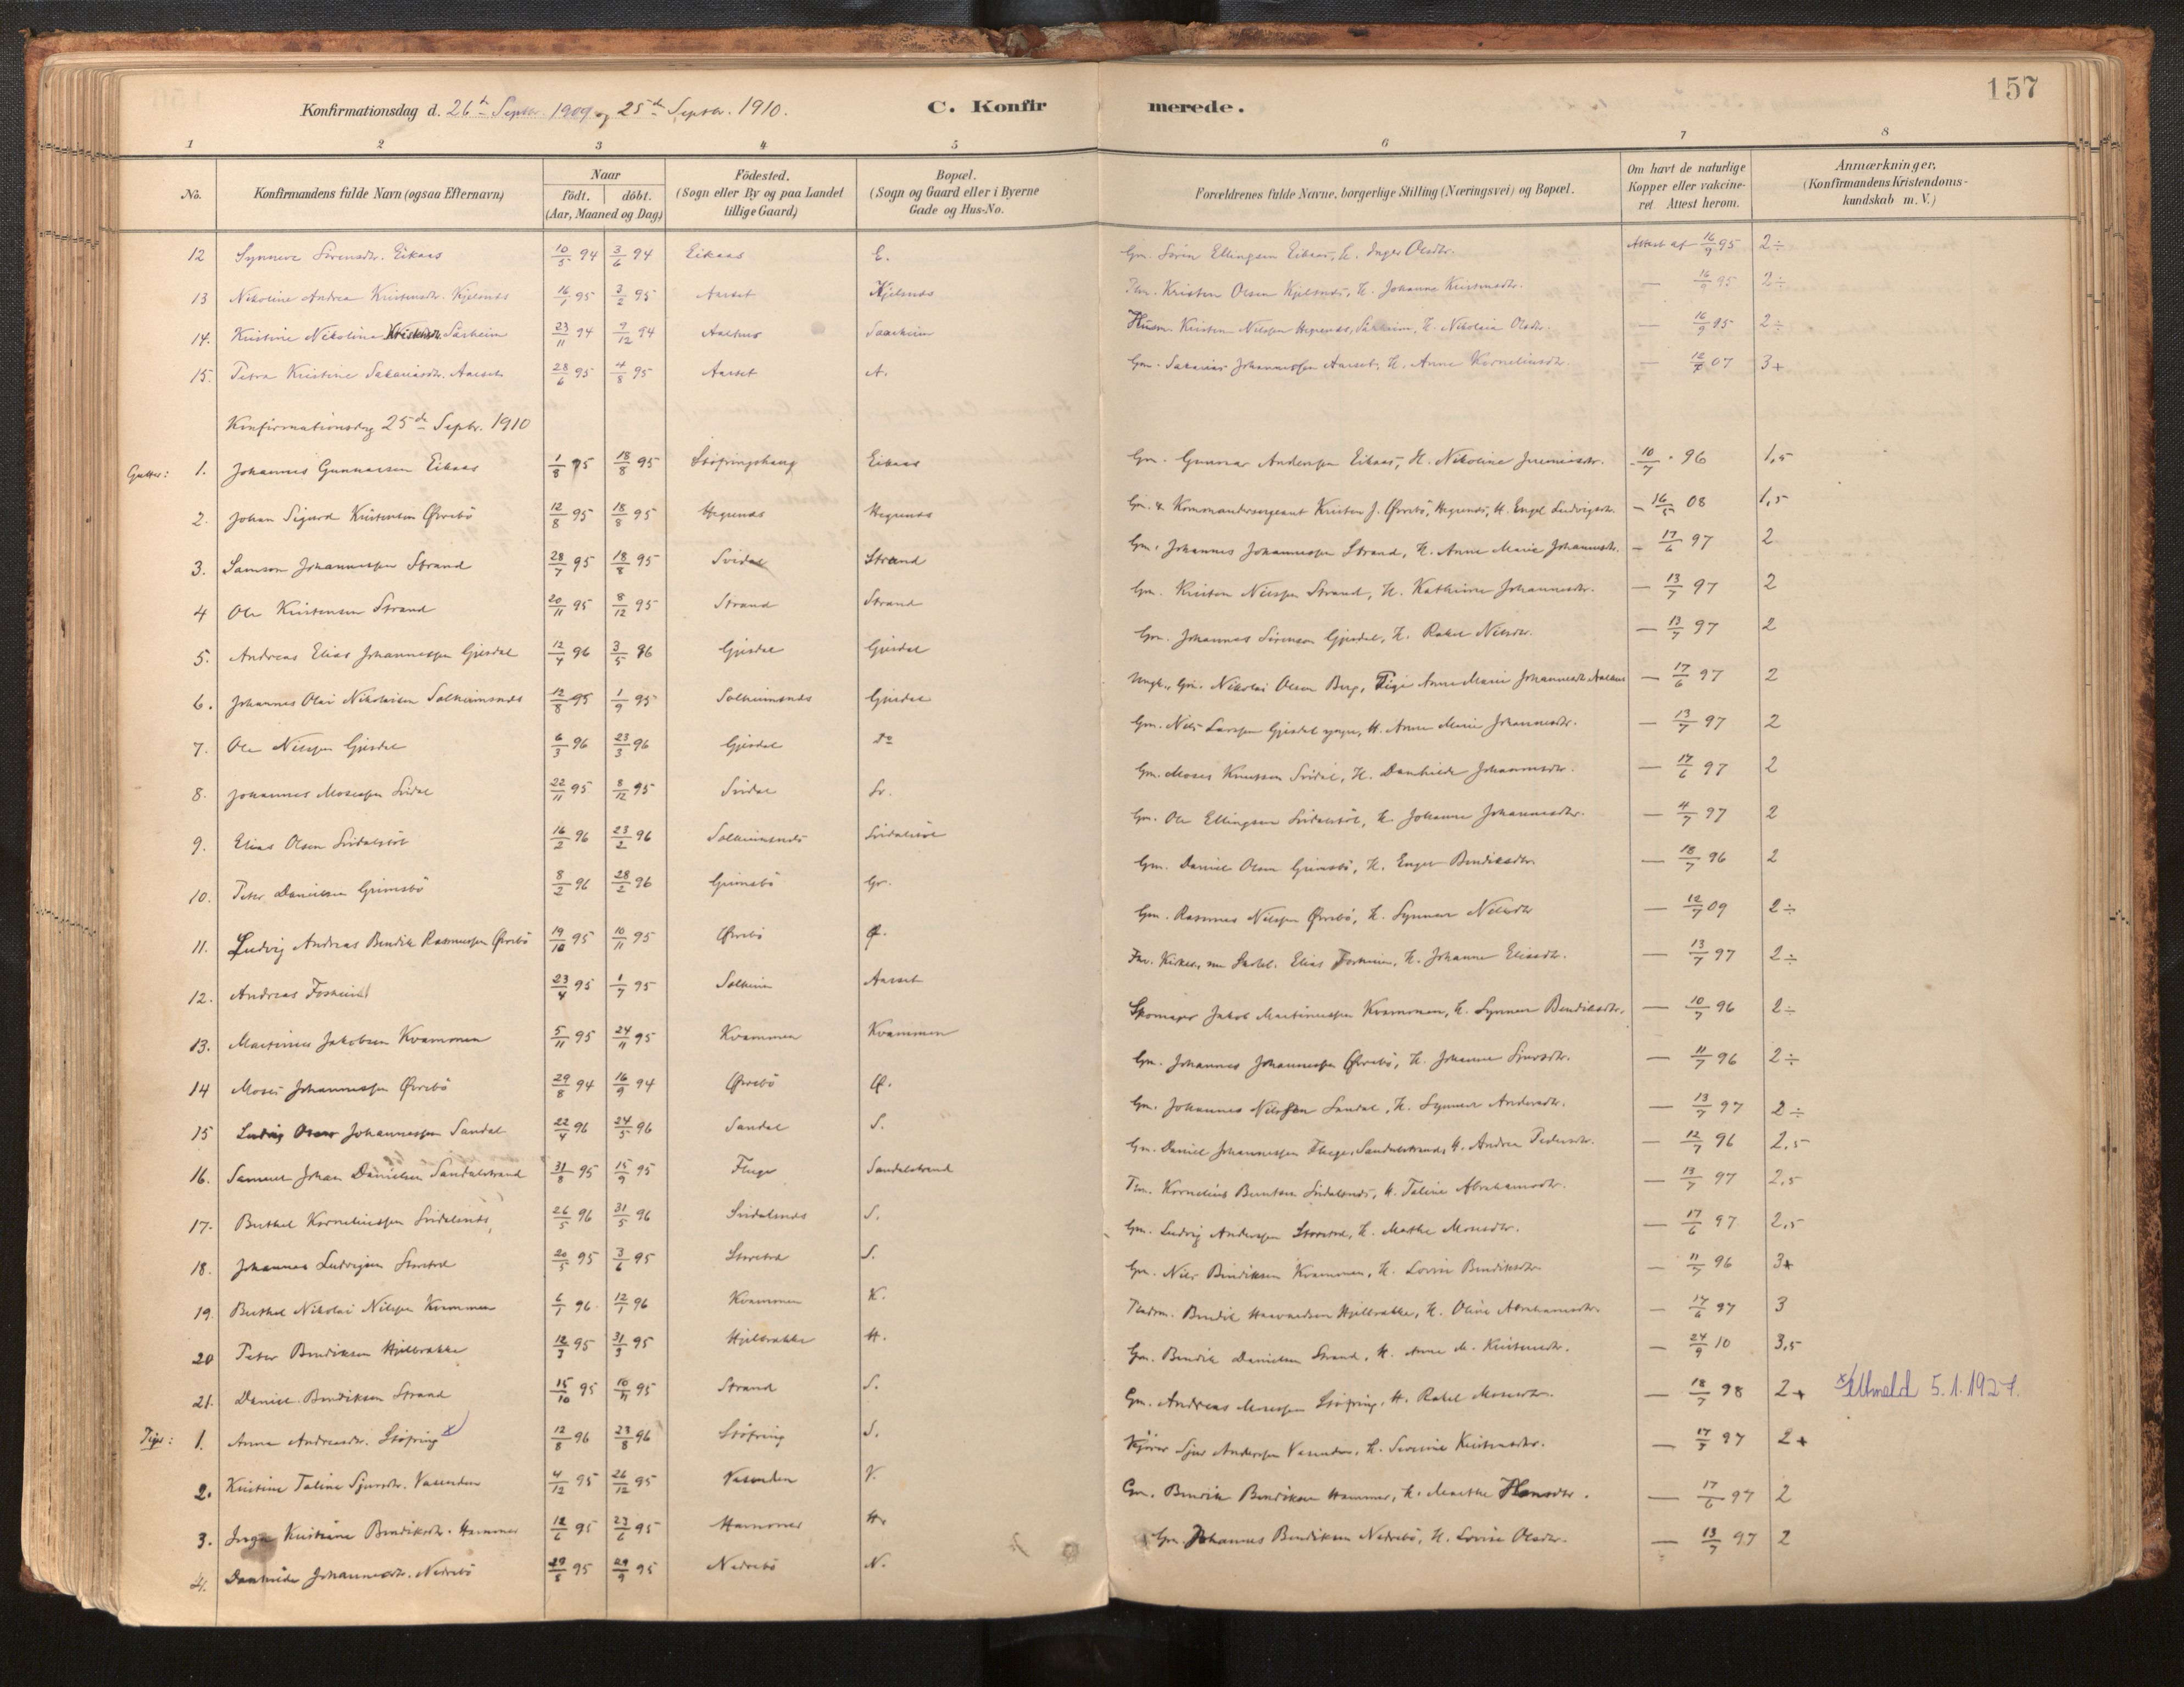 157
Konfirmationsdag d. 26de Septbr. 1909 og 25de Septbr. 1910.
C. Konfirmerede.
1 2 3 4 5 6 7 8
No. Konfirmandens fulde Navn (ogsaa Efternavn) Naar født. døbt. (Aar, Maaned og Dag) Födested. (Sogn eller By og paa Landet tillige Gaard) Bopæl. (Sogn og Gaard eller i Byerne Gade og Hus-No. Forældrenes fulde Navne, borgerlige Stilling (Næringsvei) og Bopæl. Om havt de naturlige Kopper eller vakcineret Attest herom. Anmærkninger. (Konfirmandens Kristendomskundskab m. V.)
12 Synneve Sörensdtr. Eikaas 10/5 94 3/6 94 Eikaas E. Gm. Sören Ellingsen Eikaas, H. Inger Olsdtr. Attest af 16/9 95 2÷
13 Nikoline Andrea Kristensdtr. Kjelsnes 16/1 95 3/2 95 Aarset Kjelsnes Kristen Olsen Kjelsnes, H. Johanne Kristensdtr. — 16/9 95 2÷
14. Kristine Nikoline Sårheim 23/11 94 9/12 94 Aalhus Saarheim Husm. Kristen Nilssen Hegrenes, Sårheim, H. Nikolaia Olsdtr. — 16/9 95 2÷
15. Petra Kristine Sakariasdtr. Aarset 28/6 95 4/8 95 Aarset A. Gm. Sakarias Johannessen Aarset, H. Anne Korneliusdtr. — 12/7 07 3+
Konfirmationsdag 25de Septbr. 1910
Gutter: 1. Johannes Gunnarsen Eikaas 1/8 95 18/8 95 Støfringshaug Eikaas Gm. Gunnar Andersen Eikaas, H. Nikoline Jeremiasdtr. — 10/7 96 1,5
2. Johan Sigurd Kristensen Øvrebö 12/8 95 18/8 95 Hegrenes Hegrenes Gm. & Kommandersergeant Kristen J. Øvrebö, Hegrenes, H. Engel Ludvigsdtr. — 16/5 08 1,5
3. Samson Johannessen Strand 28/7 95 18/8 95 Svidal Strand Gm. Johannes Johannessen Strand, H. Anne Marie Johannesdtr. — 17/6 97 2
4 Ole Kristensen Strand 20/11 95 8/12 95 Strand Strand Gm. Kristen Nilssen Strand, H. Kathrine Johannesdtr. — 13/7 97 2
5. Andreas Elias Johannessen Gjesdal 12/4 96 3/5 96 Gjesdal Gjesdal Gm. Johannes Sörensen Gjesdal, H. Rakel Nilsdtr. — 13/7 97 2
6. Johannes Olai Nikolaisen Solheimsnes 12/8 95 1/9 95 Solheimsnes Gjesdal Ungk., Gm. Nikolai Olsen Berg, Pige Anne Marie Johannesdtr. Aalhus — 17/6 97 2
7. Ole Nilssen Gjesdal 6/3 96 23/3 96 Gjesdal Do Gm. Nils Larssen Gjesdal yngre, H. Anne Marie Johannesdtr. — 13/7 97 2
8. Johannes Mosessen Svidal 22/11 95 8/12 95 Svidal Sv. Gm. Moses Knutsen Svidal, H. Danhilde Johannesdtr. — 17/6 97 2
9. Elias Olsen Svidalstöl 16/2 96 23/2 96 Solheimsnes Svidalstöl Gm. Ole Ellingsen Svidalstöl, H. Johanne Johannesdtr. — 4/7 97 2
10. Peter Danielsen Grimsbö 8/2 96 28/2 96 Grimsbö Gr. Gm. Daniel Olsen Grimsbö, H. Engel Bendiksdtr. — 18/7 96 2
11. Ludvig Andreas Bendik Rasmussen Øvrebö 19/10 95 10/11 95 Øvrebö Ø. Gm. Rasmus Nilssen Øvrebö, H. Synneve Nilsdtr. — 12/7 09 2÷
12. Andreas Forsheim 23/4 95 1/7 95 Solheim Aarset Elias Forsheim, H. Johanne Eliasdtr. — 13/7 97 2÷
13. Martinus Jakobsen Kvammen 5/11 95 24/11 95 Kvammen Kvammen Skomager Jakob Martinussen Kvammen, H. Synneve Bendiksdtr. — 10/7 96 2÷
14 Moses Johannessen Øvrebö 29/8 94 16/9 94 Øvrebö Ø. Gm. Johannes Johannessen Øvrebö, H. Johanne Sjursdtr. — 11/7 96 2÷
15 Ludvig Johannessen Sandal 22/4 96 24/5 96 Sandal S. Gm. Johannes Nilssen Sandal, H. Synneve Andersdtr. — 13/7 97 2÷
16. Samuel Johan Danielsen Sandalstrand 31/8 95 15/9 95 Fluge Sandalstrand Gm. Daniel Johannessen Fluge, Sandalstrand, H. Andrea Pedersdtr. — 12/7 96 2,5
17. Berthel Korneliussen Svidalsnes 26/5 96 31/5 96 Svidalsnes S. Kornelius Berntsen Svidalsnes, H. Taline Abrahamsdtr. — 13/7 97 2,5
18. Johannes Ludvigsen Storetved 20/5 95 3/6 95 Storetved S. Gm. Ludvig Anderssen Storetved, H. Marthe Mosesdtr. — 17/6 97 2,5
19. Berthel Nikolai Nilssen Kvammen 6/1 96 12/1 96 Kvammen K. Gm. Nils Bendiksen Kvammen, H. Lovise Bendiksdtr. — 11/7 96 3+
20 Peter Bendiksen Hjelbrække 12/3 95 31/3 95 Hjelbrække H. Pladsm. Bendik Haavardsen Hjelbrække, H. Oline Abrahamsdtr. — 17/6 97 3
21. Daniel Bendiksen Strand 15/10 95 10/11 95 Strand S. Gm. Bendik Danielsen Strand, H. Anne M. Kristensdtr. — 24/9 10 3,5
Piger: 1. Anna Andreasdtr. Støfring x) 12/8 96 23/8 96 Støfring S. Gm. Andreas Mosessen Støfring, H. Rakel Mosesdtr. — 18/7 98 2+ x) Utmeld 5.1.1927.
2. Kristine Taline Sjursdtr. Vasenden 4/12 95 26/12 95 Vasenden V. Sjur Anderssen Vasenden, H. Severine Kristensdtr. — 17/7 97 2+
3. Inga Kristine Bendiksdtr. Hammer 12/6 95 23/6 95 Hammer H. Gm. Bendik Bendiksen Hammer, H. Marthe Hansdtr. — 17/6 97 2
4. Danhilde Johannesdtr. Nedrebö 29/8 95 29/9 95 Nedrebö N. Gm. Johannes Bendiksen Nedrebö, H. Lovise Olsdtr. — 13/7 97 2